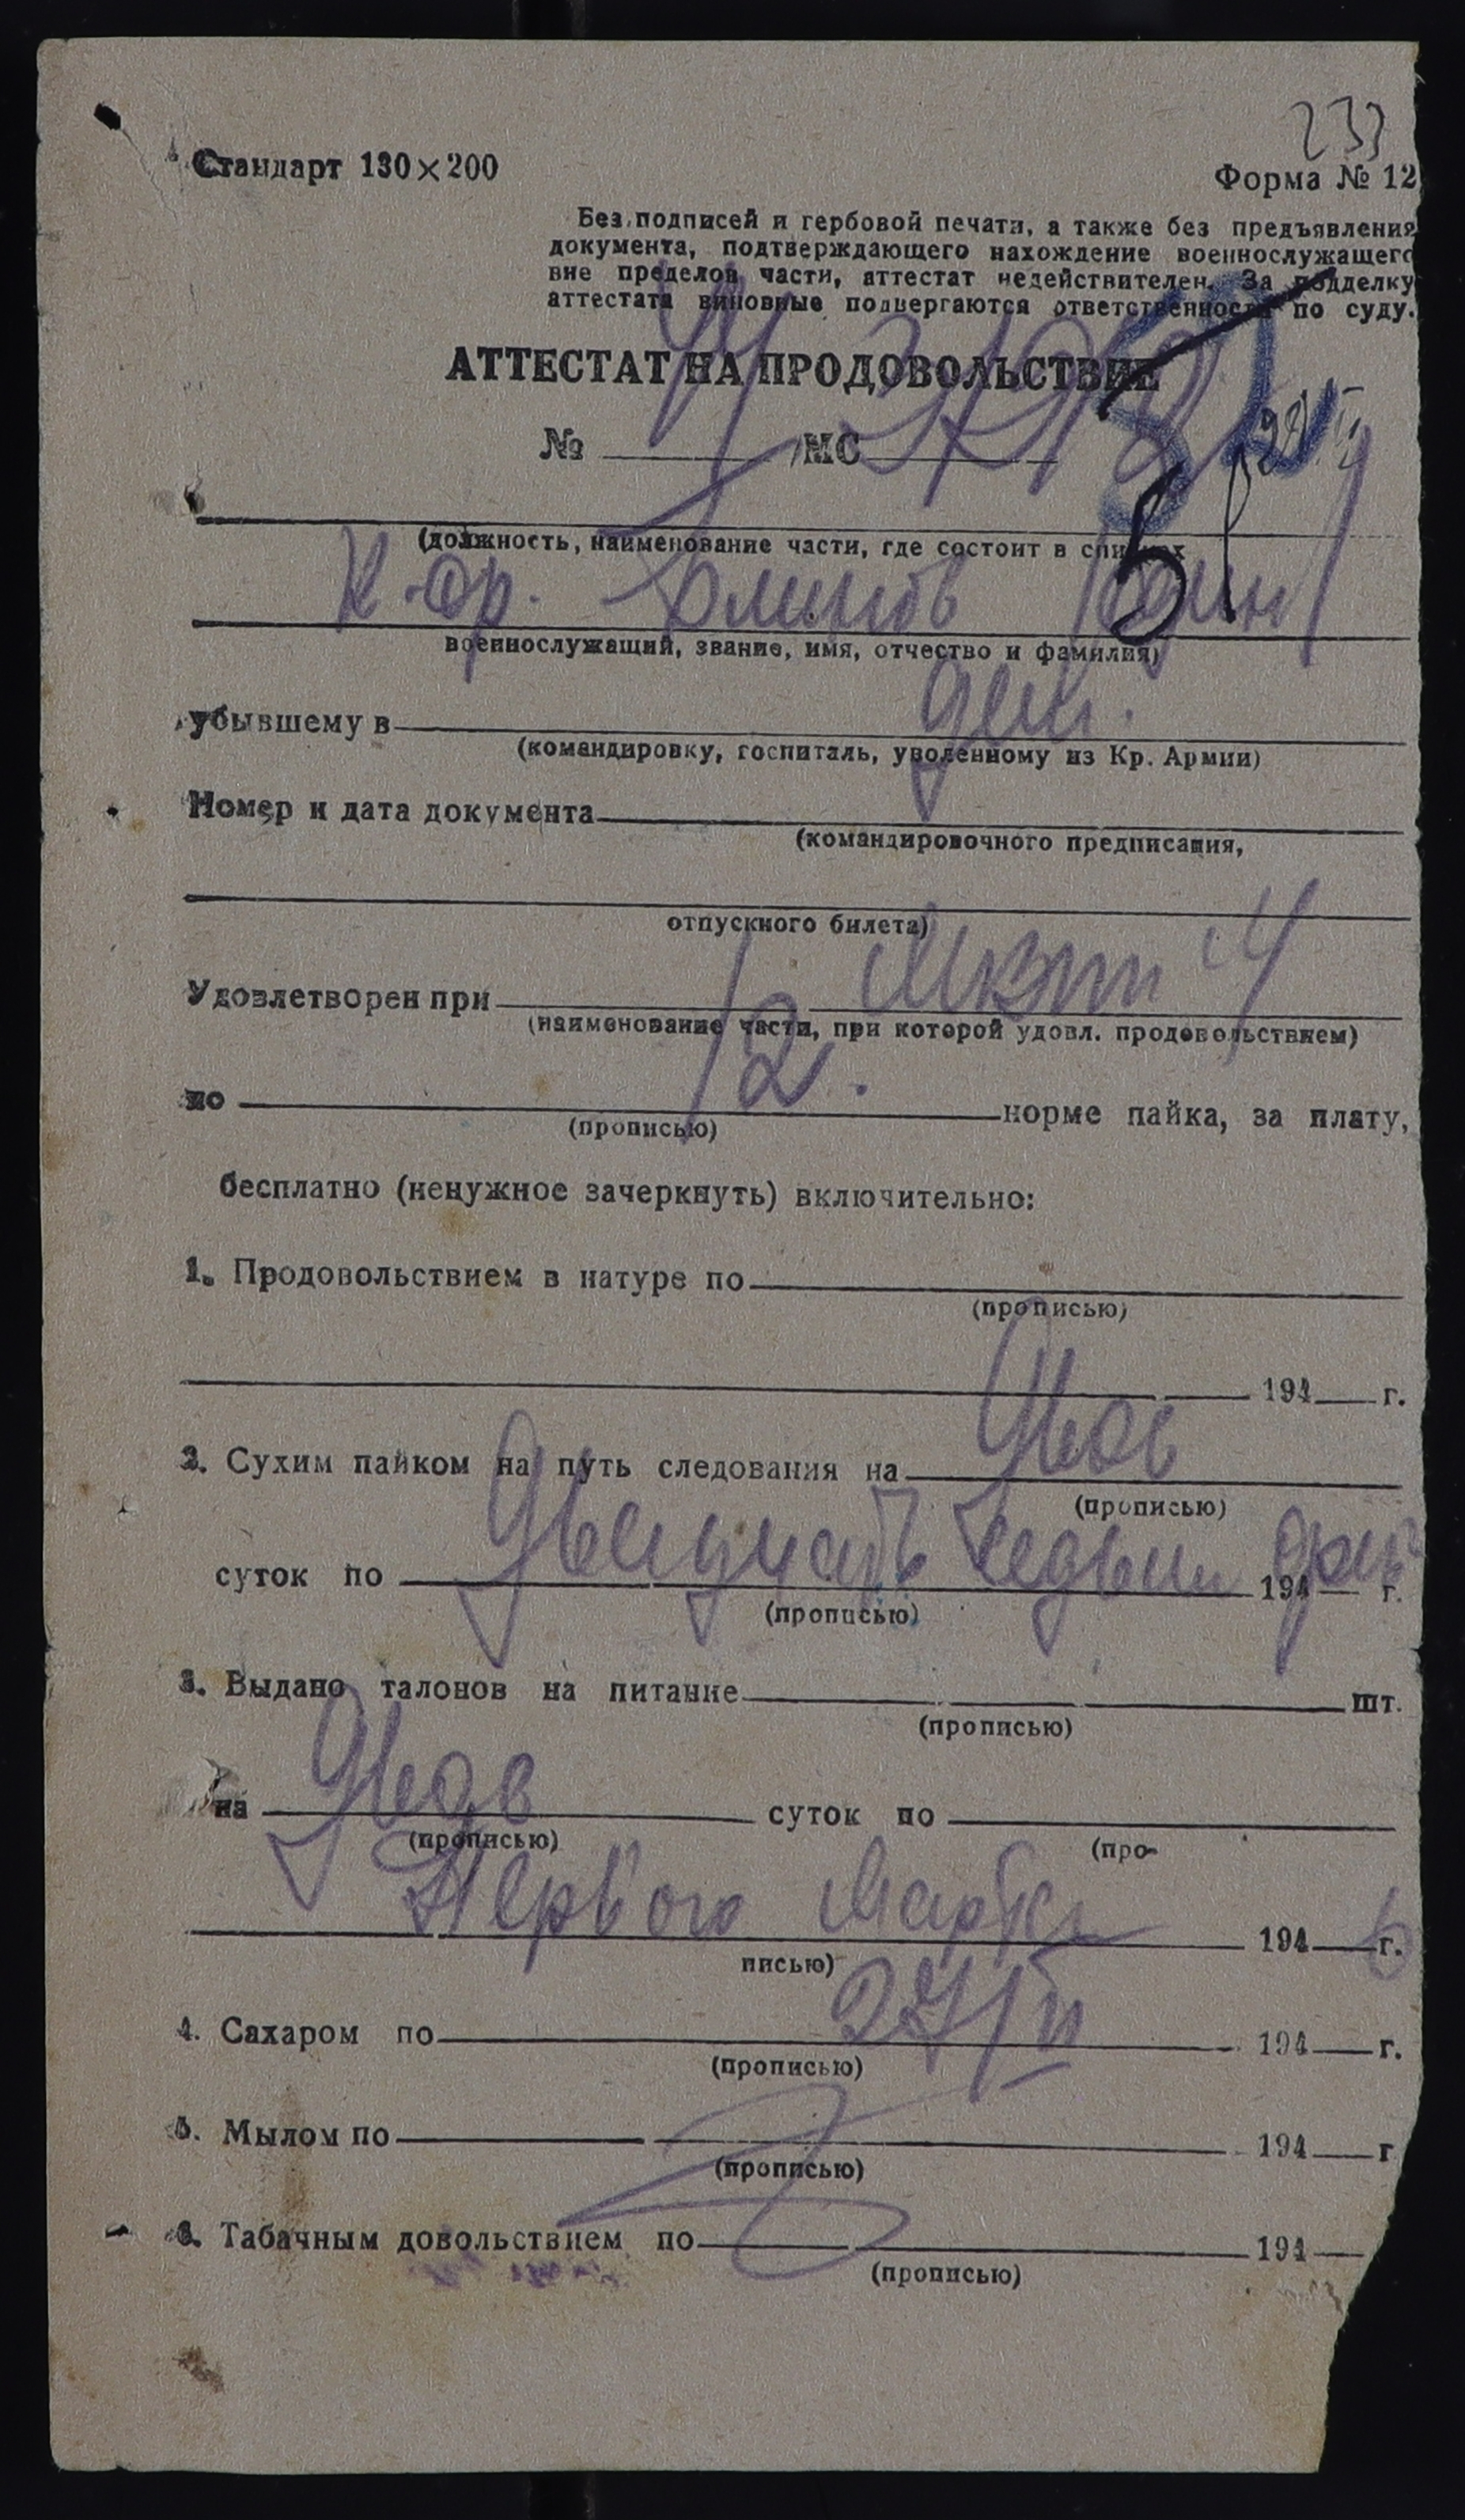 233
Стандарт 130×200
Форма № 12
Без подписей и гербовой печати, а также без предъявления
документа, подтверждающего нахождение военнослужащего
вне пределов части, аттестат недействителен. За подделку
аттестата виновные подвергаются ответственности по суду.
АТТЕСТАТ НА ПРОДОВОЛЬСТВИЕ
№ /МС
(должность, наименование части, где состоит в списках
К-ор.
военнослужащий, звание, имя, отчество и фамилия)
убывшему в
(командировку, госпиталь, уволенному из Кр. Армии)
Номер и дата документа
(командировочного предписания,
отпускного билета)
Удовлетворен при
(наименование части, при которой удовл. продовольствием)
по 12. норме пайка, за плату,
(прописью)
бесплатно (ненужное зачеркнуть) включительно:
1. Продовольствием в натуре по
(прописью)
194 г.
2. Сухим пайком на путь следования на двое
(прописью)
суток по двадцать седьмого 194 г.
(прописью)
3. Выдано талонов на питание шт.
(прописью)
на двое суток по
(прописью) (про-
Первого марта 194 г.
писью)
27/II
4. Сахаром по 194 г.
(прописью)
5. Мылом по 194 г
(прописью)
6. Табачным довольствием по 194
(прописью)